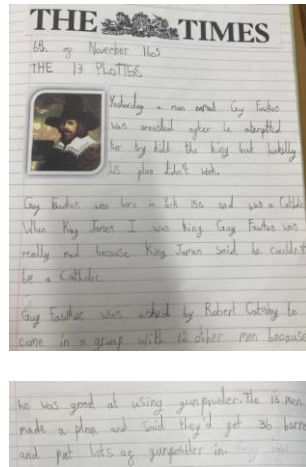 THE TIMES
6th of November 1605
THE 13 PLOTTERS
Yesterday a man named Guy Fawkes
was arrested after he attempted
to kill the king but luckily
his plan didn't work.
Guy Fawkes was born in York and was a Catholic
When King James I was king Guy Fawkes was
really mad because King James said he couldn't
be a Catholic
Guy Fawkes was asked by Robert Catesby to
come in a group with 12 other men because
he was good at using gunpowder. The 13 men
made a plan and said they'd get 36
and put lots of gunpowder in.